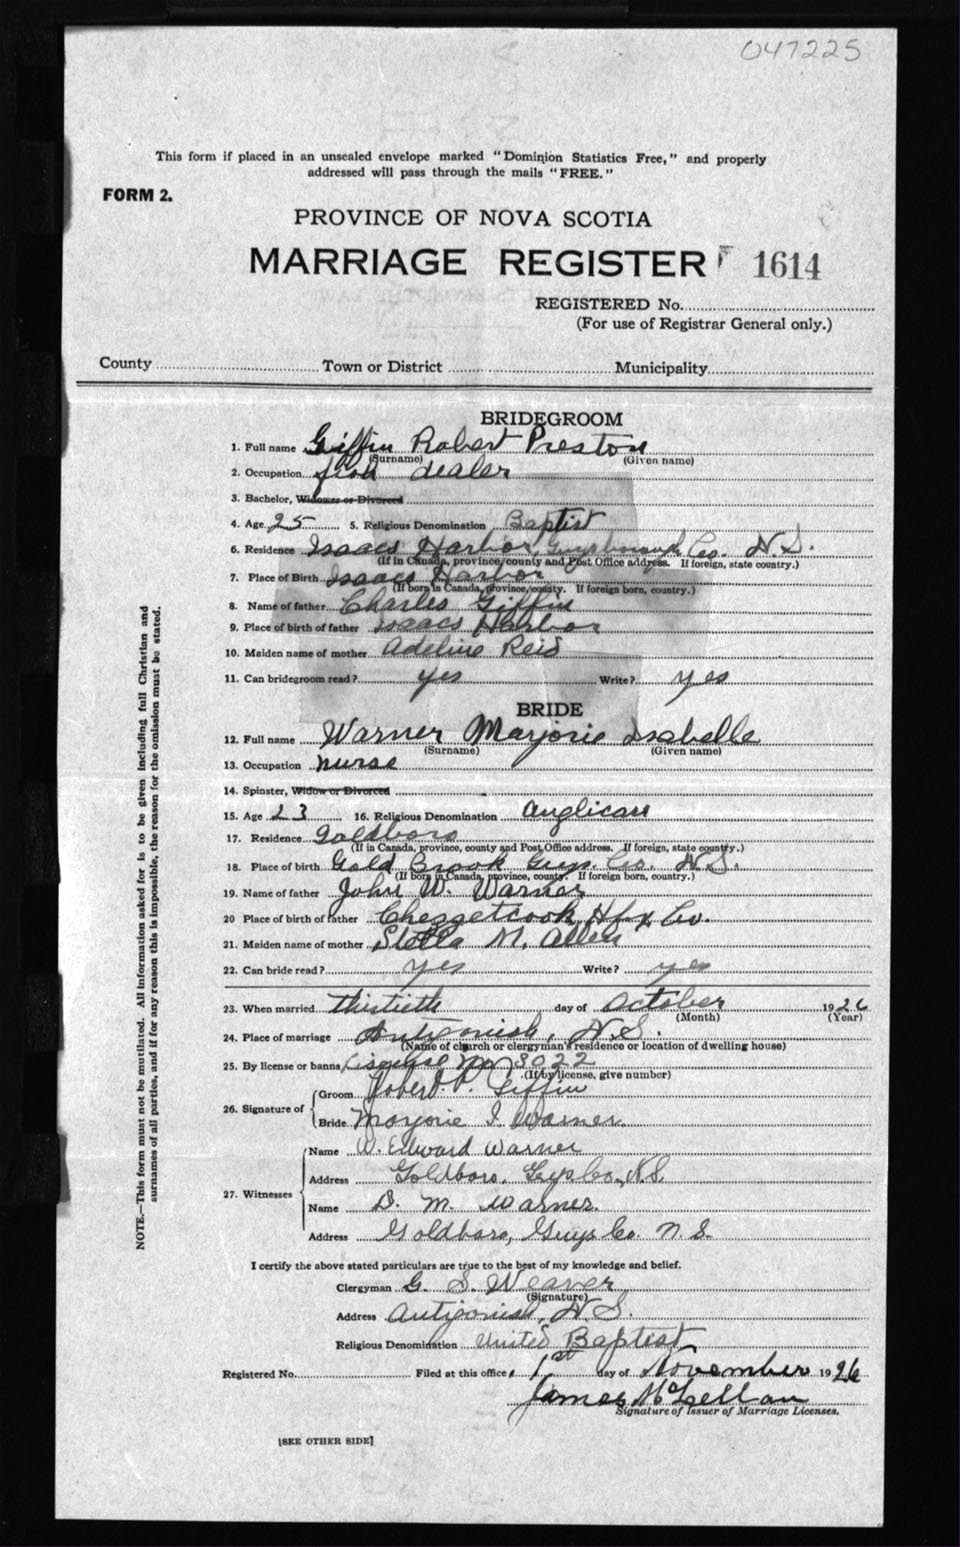 047225
This form if placed in an unsealed envelope marked "Dominion Statistics Free," and properly
addressed will pass through the mails "FREE."
FORM 2.
PROVINCE OF NOVA SCOTIA
MARRIAGE REGISTER 1614
REGISTERED No.
(For use of Registrar General only.)
County Town or District Municipality
BRIDEGROOM
1. Full name Giffin Robert Preston
(Surname) (Given name)
2. Occupation fish dealer
3. Bachelor, Widower or Divorced
4. Age 25 5. Religious Denomination Baptist
6. Residence Isaacs Harbor, Guysborough Co. N.S.
(If in Canada, province, county and Post Office address. If foreign, state country.)
7. Place of Birth Isaacs Harbor
(If born in Canada, province, county. If foreign born, country.)
8. Name of father Charles Giffin
9. Place of birth of father Isaacs Harbor
10. Maiden name of mother Adeline Reid
11. Can bridegroom read? yes Write? yes
BRIDE
12. Full name Warner Marjorie Isabelle
(Surname) (Given name)
13. Occupation nurse
14. Spinster, Widow or Divorced
15. Age 23 16. Religious Denomination Anglican
17. Residence Goldboro
(If in Canada, province, county and Post Office address. If foreign, state country.)
18. Place of birth Gold Brook Guys. Co. N.S.
(If born in Canada, province, county. If foreign born, country.)
19. Name of father John W. Warner
20 Place of birth of father Chezzetcook Hfx Co.
21. Maiden name of mother Stella M. Allen
22. Can bride read? yes Write? yes
23. When married thirtieth day of October 1926
(Month) (Year)
24. Place of marriage Antigonish, N.S.
(Name of church or clergyman's residence or location of dwelling house)
25. By license or banns License No 3022
(If by license, give number)
26. Signature of
Groom Robert P. Giffin
Bride Marjorie I. Warner
27. Witnesses
Name W. Edward Warner
Address Goldboro, Guys Co., N.S.
Name S. M. Warner.
Address Goldboro, Guys Co. N. S.
I certify the above stated particulars are true to the best of my knowledge and belief.
Clergyman G. S. Weaver
(Signature)
Address Antigonish, N.S.
Religious Denomination United Baptist
Registered No. Filed at this office 1st day of November 1926
James McLellan
Signature of Issuer of Marriage Licenses.
[SEE OTHER SIDE]
NOTE.—This form must not be mutilated. All information asked for is to be given including full Christian and
surnames of all parties, and if for any reason this is impossible, the reason for the omission must be stated.